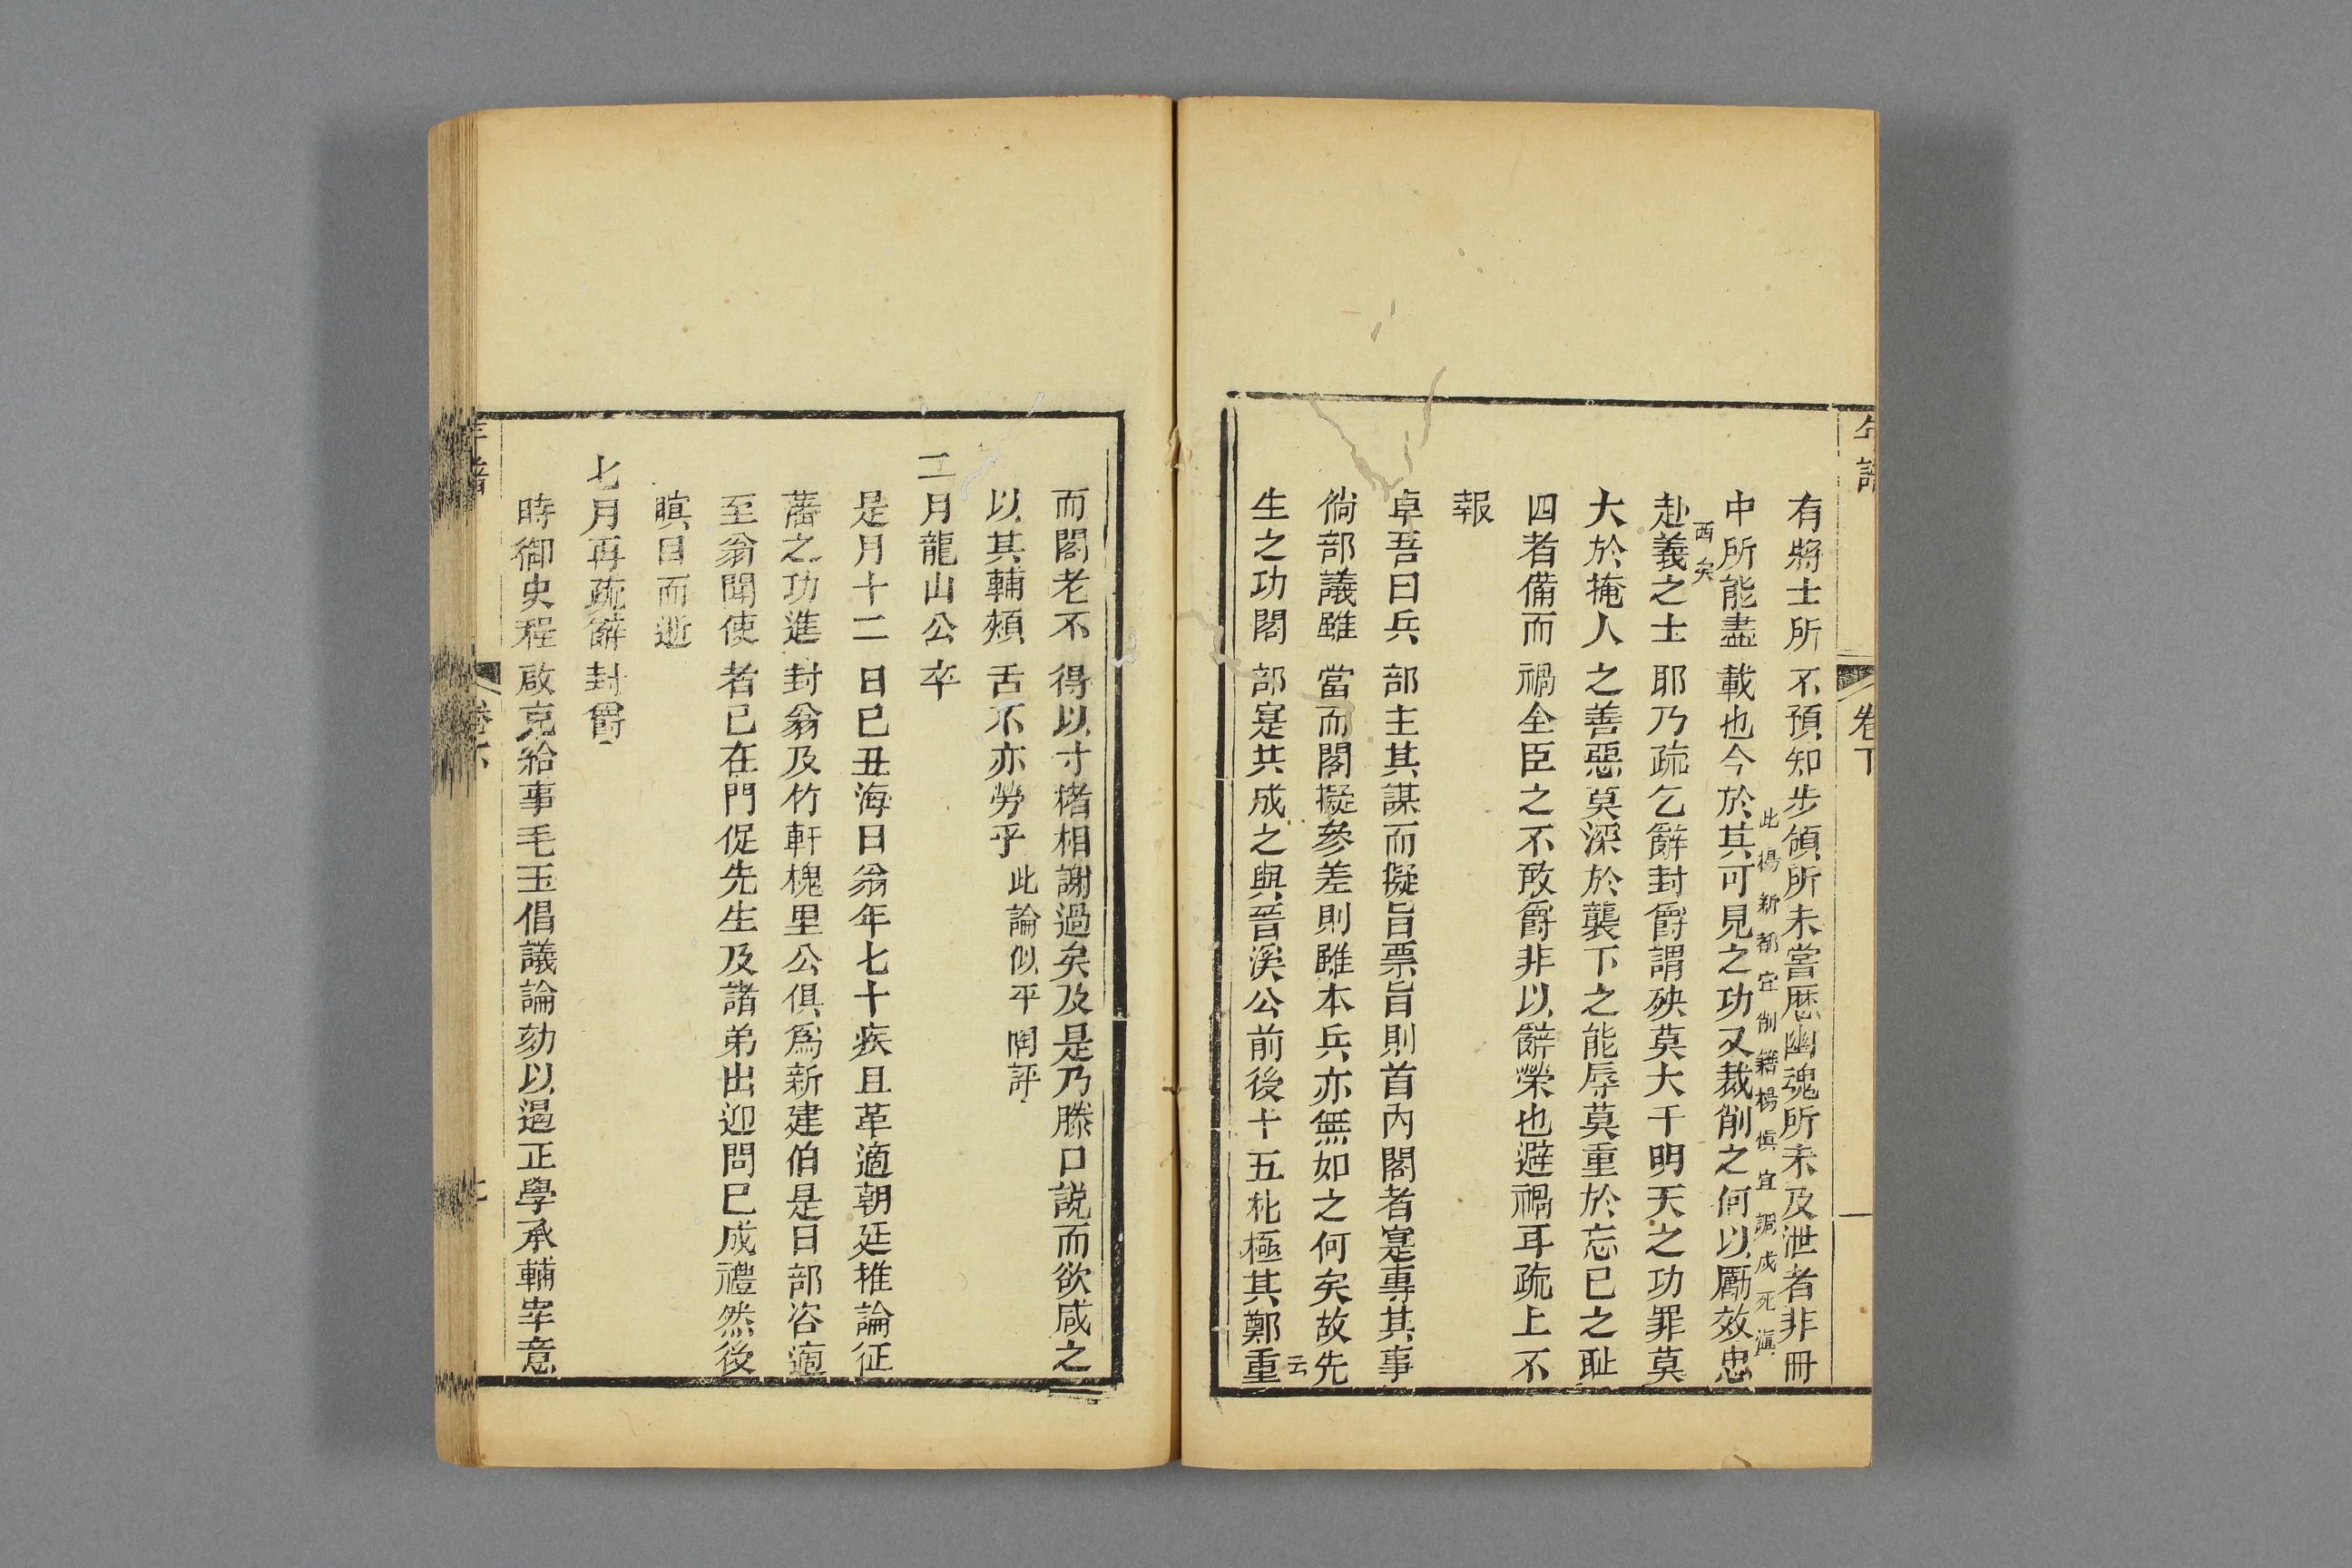 年譜 卷下
有將士所不預知步領所未嘗歷幽魂所未及泄者非冊
此楊新都宜削籍楊慎宜謫戍死滇
中所能盡載也今於其可見之功又裁削之何以勵效忠
西矣
赴義之士耶乃疏乞辭封爵謂殃莫大于明天之功罪莫
大於掩人之善惡莫深於襲下之能辱莫重於忘已之恥
四者備而禍全臣之不敢爵非以辭榮也避禍耳疏上不
報
卓吾曰兵部主其謀而擬旨票旨則首內閣者寔專其事
倘部議雖當而閣擬參差則雖本兵亦無如之何矣故先
云
生之功閣部寔共成之與晉溪公前後十五札極其鄭重
而閣老不得以寸楮相謝過矣及是乃滕口說而欲咸之
以其輔頰舌不亦勞乎
此論似平陶評
二月龍山公卒
是月十二日已丑海日翁年七十疾且革適朝廷推論征
藩之功進封翁及竹軒槐里公俱爲新建伯是日部咨適
至翁聞使者已在門促先生及諸弟出迎問已成禮然後
瞑目而逝
七月再疏辭封爵
時御史程啟充給事毛玉倡議論劾以遏正學承輔宰意
年譜 卷下